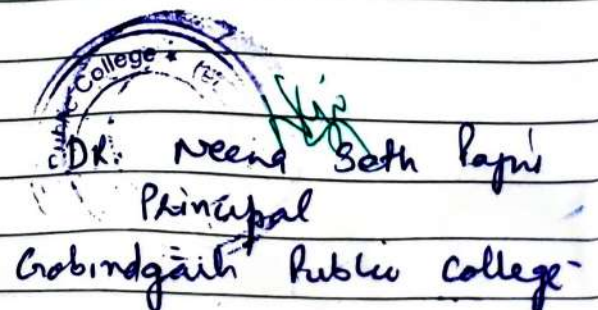 Public College *
DR. Neena Seth Pajni
Principal
Gobindgarh Public College